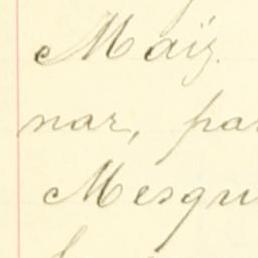 Maïz.
nar, pa
Mesqu